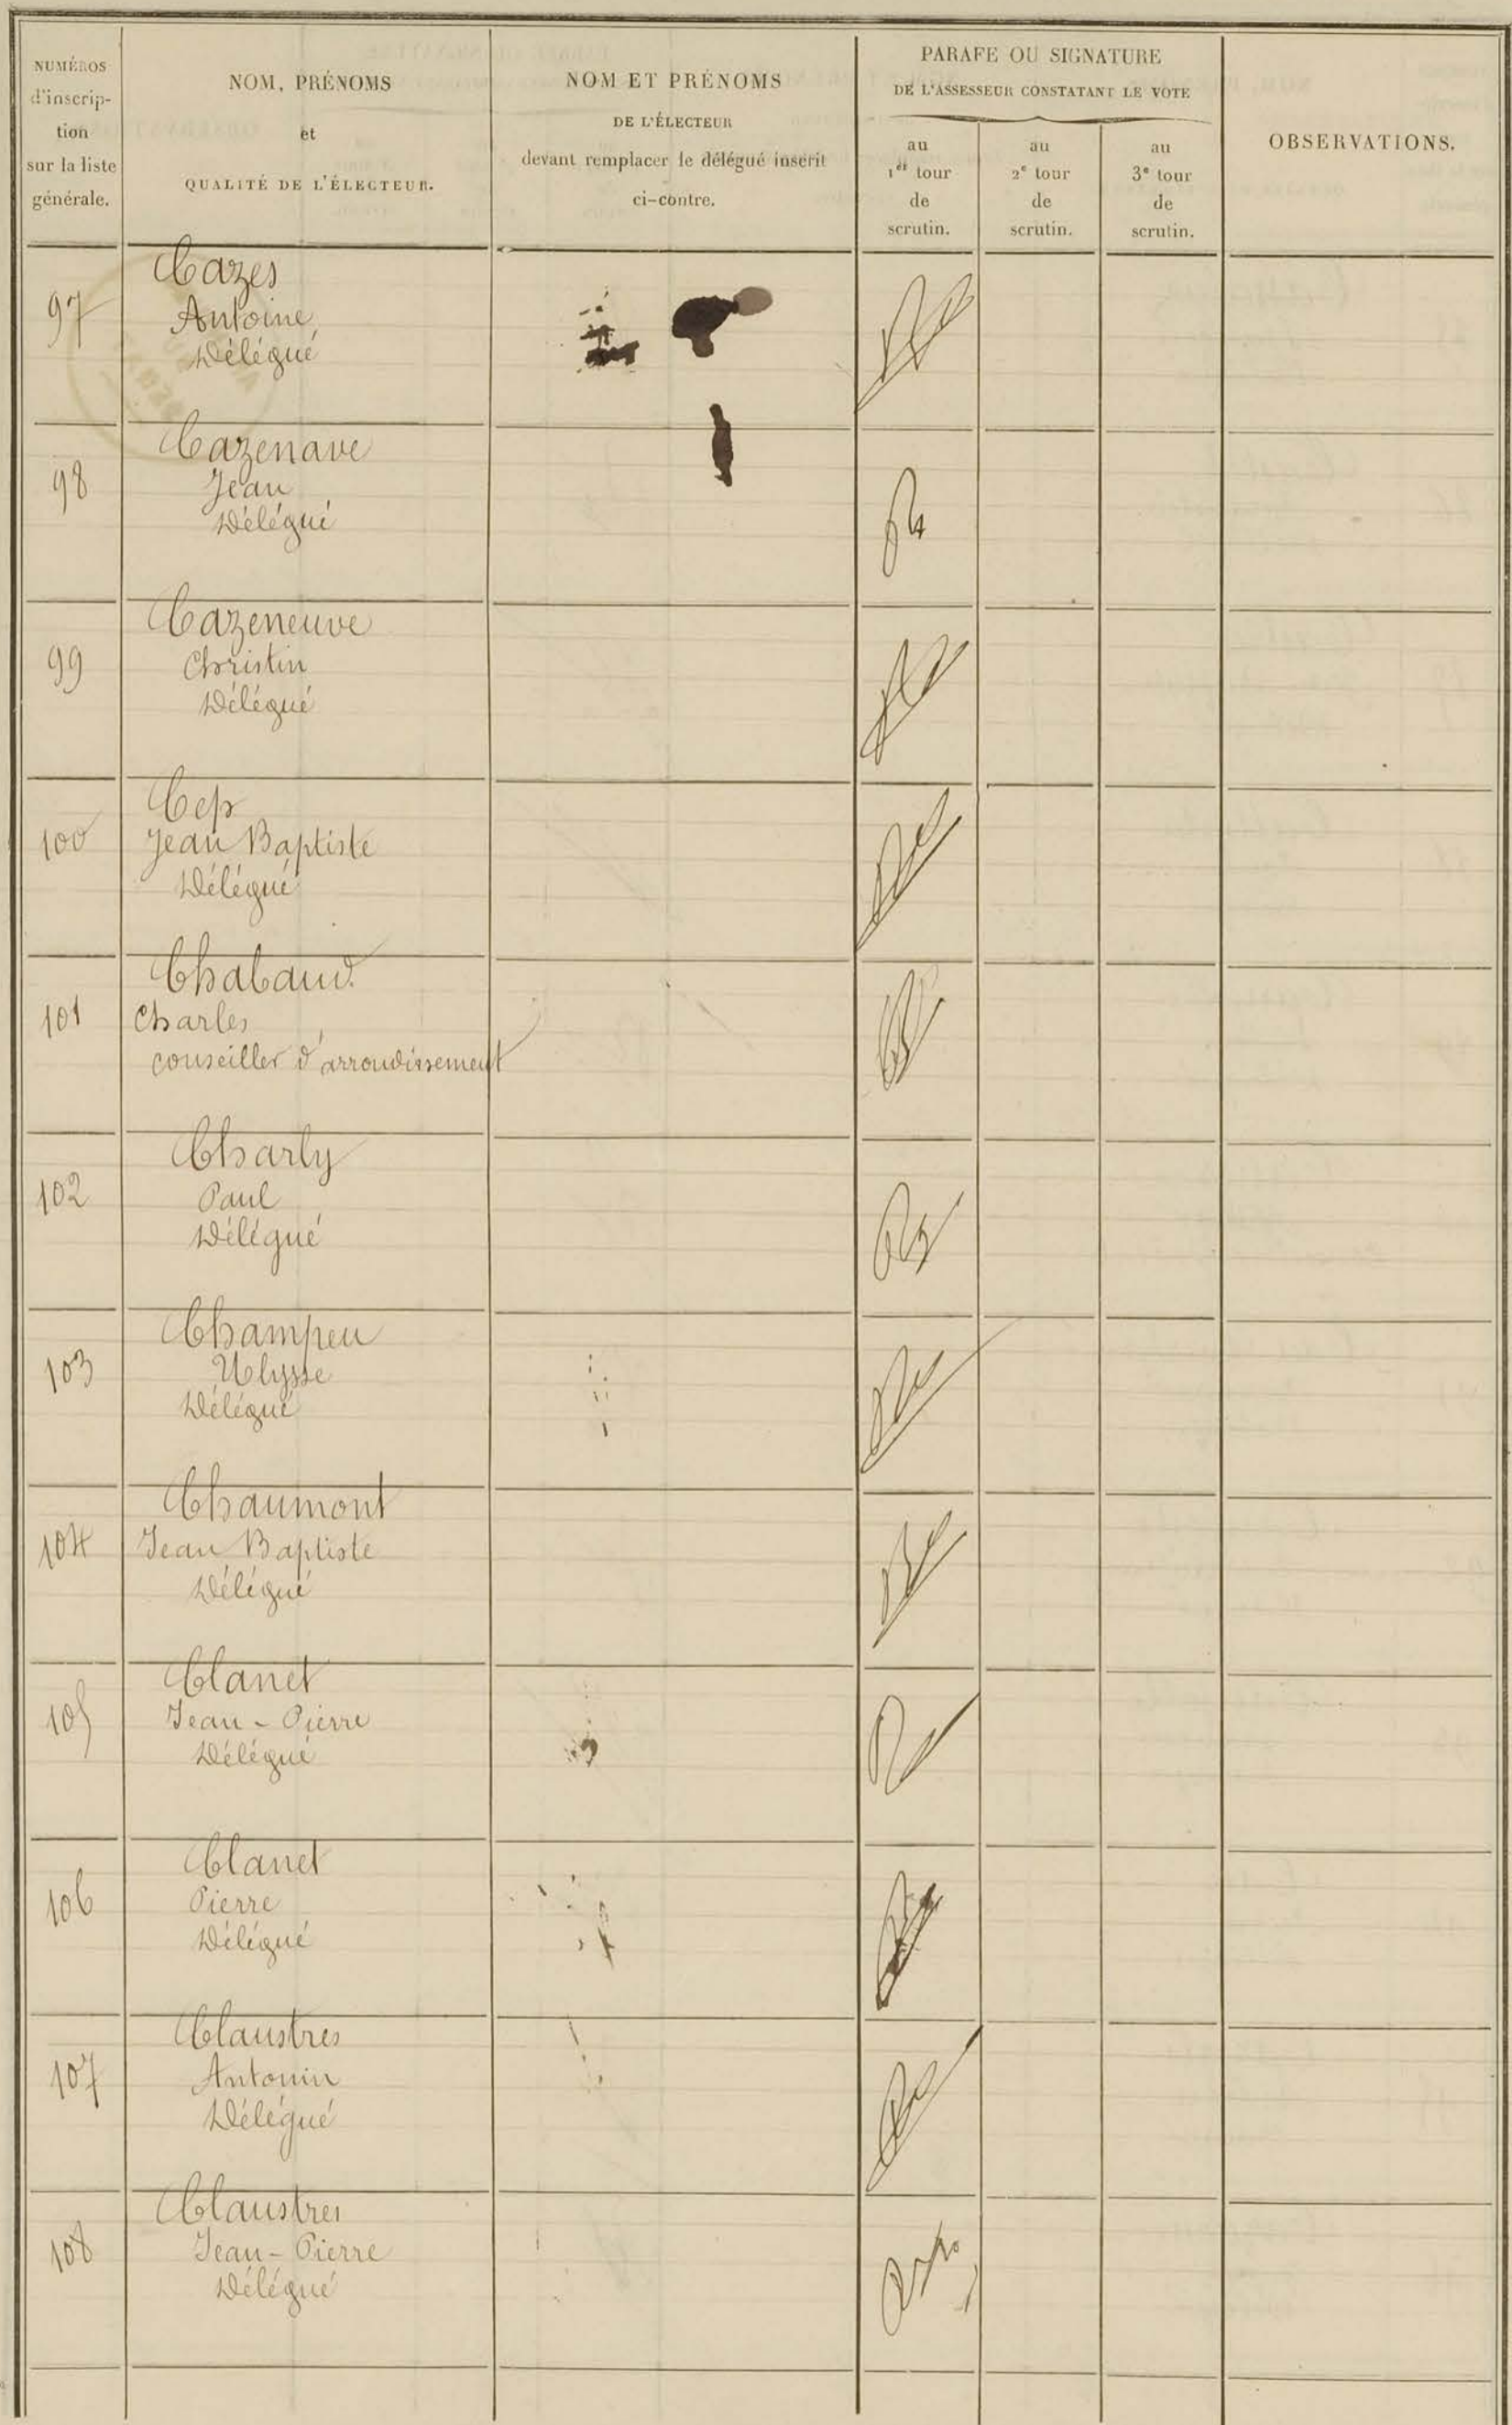 NUMÉROS
d'inscrip-
tion
sur la liste
générale.
NOM, PRÉNOMS
et
QUALITÉ DE L'ÉLECTEUR.
NOM ET PRÉNOMS
DE L'ÉLECTEUR
devant remplacer le délégué inscrit
ci-contre.
PARAFE OU SIGNATURE
DE L'ASSESSEUR CONSTATANT LE VOTE
au
1er tour
de
scrutin.
au
2e tour
de
scrutin.
au
3e tour
de
scrutin.
OBSERVATIONS.
97
Cazes
Antoine,
Délégué
98
Cazenave
Jean
Délégué
99
Cazeneuve
Christin
Délégué
100
Cep
Jean Baptiste
Délégué
101
Chabaud
Charles
conseiller d'arrondissement
102
Charly
Paul
Délégué
103
Champeu
Ulysse
Délégué
104
Chaumont
Jean Baptiste
Délégué
105
Clanet
Jean-Pierre
Délégué
106
Clanet
Pierre
Délégué
107
Claustres
Antonin
Délégué
108
Claustres
Jean-Pierre
Délégué